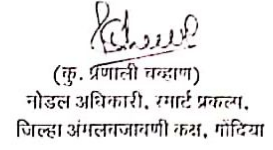 (कु. प्रणाली चव्हाण)
नोडल अधिकारी, स्मार्ट प्रकल्प,
जिल्हा अंमलबजावणी कक्ष, गोंदिया